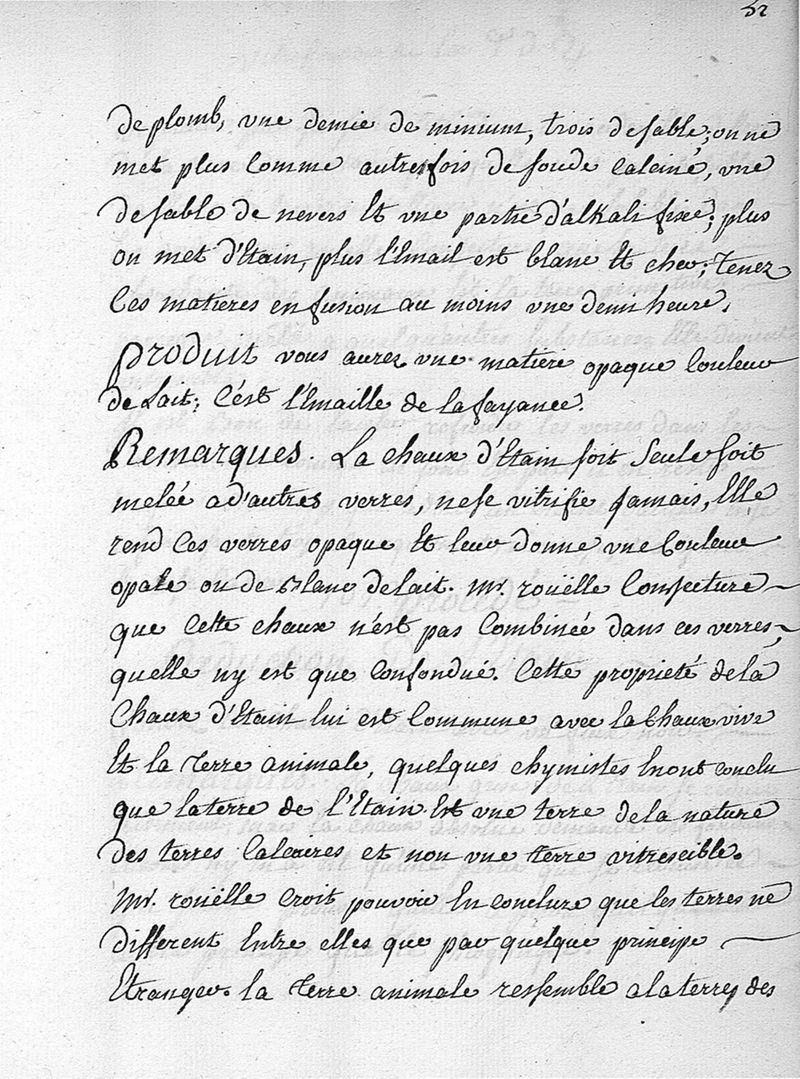 52
de plomb, vne demie de minium, trois de sable; on ne
met plus Comme autresfois de soude Calciné, vne
de sable de nevers Et vne partie d'alkali fixe; plus
on met d'Etain, plus l'Email est blanc Et cher; Tenez
Ces matieres en fusion au moins vne demi heure.
Produit vous aurez vne matiere opaque Couleur
de Lait; C'est l'Emaille de la fayance.
Remarques. La chaux d'Etain soit Seule soit
melée a d'autres verres, ne se vitrifie Jamais, Elle
rend Ces verres opaque Et leur donne vne Couleur
opale ou de Blanc de lait. Mr. roüelle Conjecture
que Cette chaux n'est pas Combinée dans ces verres,
quelle ny est que Confondué. Cette proprieté de la
Chaux d'Etain lui est Commune avec la Chaux vive
Et la Terre animale, quelques chymistes Enont conclu
que la terre de l'Etain Est vne terre de la nature
des terres Calcaires et non vne terre vitrescible.
Mr. roüelle Croit pouvoir En conclure que les terres ne
different Entre elles que par quelque principe
Etranger. la Terre animale ressemble a la terre des